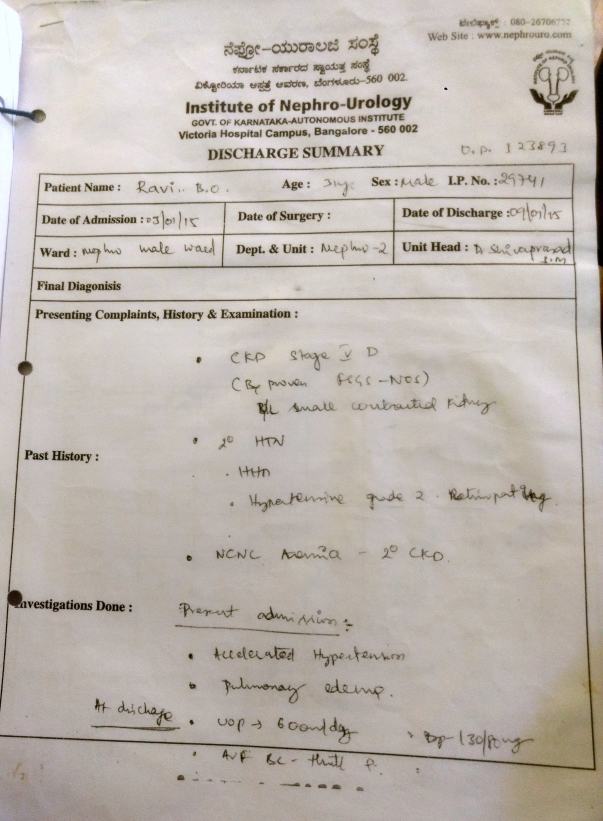 ಟೆಲಿಫ್ಯಾಕ್ಸ್ : 080-26706777
Web Site : www.nephrouro.com
ನೆಫ್ರೋ-ಯುರಾಲಜಿ ಸಂಸ್ಥೆ
ಕರ್ನಾಟಕ ಸರ್ಕಾರದ ಸ್ವಾಯತ್ತ ಸಂಸ್ಥೆ
ವಿಕ್ಟೋರಿಯಾ ಆಸ್ಪತ್ರೆ ಆವರಣ, ಬೆಂಗಳೂರು-560 002.
Institute of Nephro-Urology
GOVT. OF KARNATAKA-AUTONOMOUS INSTITUTE
Victoria Hospital Campus, Bangalore - 560 002
DISCHARGE SUMMARY
O.P. 123893
Patient Name : Ravi.. B.O. Age : 31yr Sex : Male I.P. No. : 29741
Date of Admission : 03/01/15 Date of Surgery : Date of Discharge : 09/01/15
Ward : Nephro male ward Dept. & Unit : Nephro-2 Unit Head : Dr Shivaprasad S.M
Final Diagonisis
Presenting Complaints, History & Examination :
• CKD Stage V D
(Bx proven FSGS-NOS)
B/L Small contracted kidney
• 2° HTN
Past History :
• HHD
• Hypertensive grade 2. Retinopathy
• NCNC Anemia - 2° CKD.
Investigations Done : Present admission :-
• Accelerated Hypertension
• Pulmonary edema.
At discharge • UOP → 600ml/day
• AVF BC- thrill